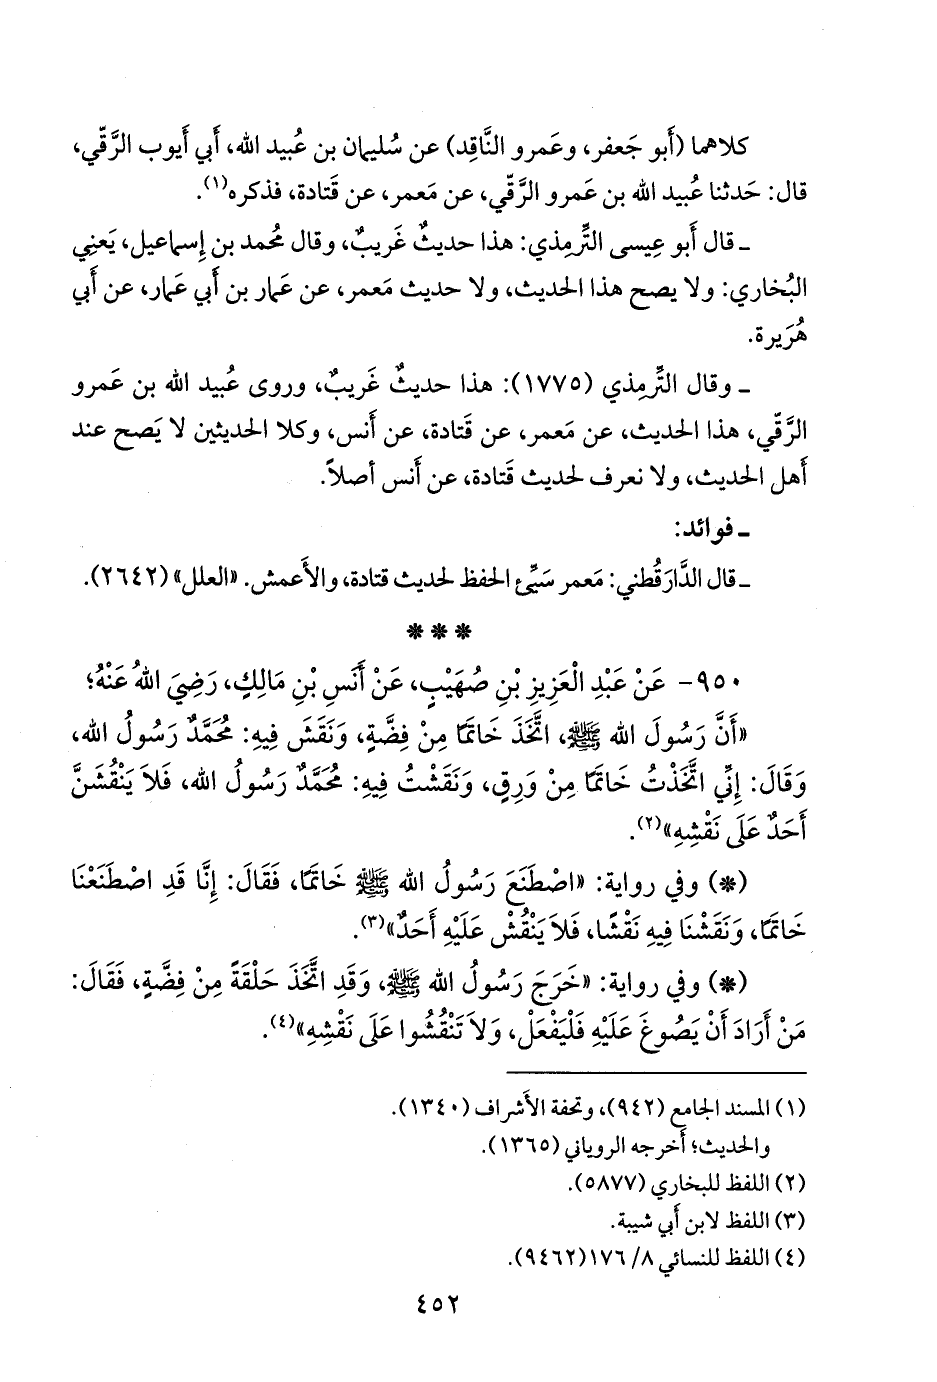 كلاهما (أَبو جَعفر، وعَمرو النَّاقِد) عن سُليمان بن عُبيد الله، أَبي أَيوب الرَّقِّي،
قال: حَدثنا عُبيد الله بن عَمرو الرَّقِّي، عن مَعمر، عن قَتادة، فذكره(١).
ـ قال أَبو عِيسى التِّرمِذي: هذا حديثٌ غَريبٌ، وقال مُحمد بن إِسماعيل، يَعنِي
البُخاري: ولا يصح هذا الحديث، ولا حديث مَعمر، عن عَمار بن أَبي عَمار، عن أَبي
هُرَيرة.
ـ وقال التِّرمِذي (١٧٧٥): هذا حديثٌ غَريبٌ، وروى عُبيد الله بن عَمرو
الرَّقِّي، هذا الحديث، عن مَعمر، عن قَتادة، عن أَنس، وكلا الحديثين لا يَصح عند
أَهل الحديث، ولا نعرف لحديث قَتادة، عن أَنس أصلاً.
ـ فوائد:
ـ قال الدَّارَقُطني: مَعمر سَيِّئ الحفظ لحديث قتادة، والأَعمش. «العلل» (٢٦٤٢).
* * *
٩٥٠- عَنْ عَبْدِ الْعَزِيزِ بْنِ صُهَيْبٍ، عَنْ أَنَسِ بْنِ مَالِكٍ، رَضِيَ اللهُ عَنْهُ؛
«أَنَّ رَسُولَ اللهِ ﷺ، اتَّخَذَ خَاتَمًا مِنْ فِضَّةٍ، وَنَقَشَ فِيهِ: مُحَمَّدٌ رَسُولُ اللهِ،
وَقَالَ: إِنِّي اتَّخَذْتُ خَاتَمًا مِنْ وَرِقٍ، وَنَقَشْتُ فِيهِ: مُحَمَّدٌ رَسُولُ اللهِ، فَلاَ يَنْقُشَنَّ
أَحَدٌ عَلَى نَقْشِهِ»(٢).
(*) وفي رواية: «اصْطَنَعَ رَسُولُ اللهِ ﷺ خَاتَمًا، فَقَالَ: إِنَّا قَدِ اصْطَنَعْنَا
خَاتَمًا، وَنَقَشْنَا فِيهِ نَقْشًا، فَلاَ يَنْقُشْ عَلَيْهِ أَحَدٌ»(٣).
(*) وفي رواية: «خَرَجَ رَسُولُ اللهِ ﷺ، وَقَدِ اتَّخَذَ حَلْقَةً مِنْ فِضَّةٍ، فَقَالَ:
مَنْ أَرَادَ أَنْ يَصُوغَ عَلَيْهِ فَلْيَفْعَلْ، وَلاَ تَنْقُشُوا عَلَى نَقْشِهِ»(٤).
(١) المسند الجامع (٩٤٢)، وتحفة الأَشراف (١٣٤٠).
والحديث؛ أَخرجه الروياني (١٣٦٥).
(٢) اللفظ للبخاري (٥٨٧٧).
(٣) اللفظ لابن أَبي شيبة.
(٤) اللفظ للنسائي ٨/ ١٧٦ (٩٤٦٢).
٤٥٢